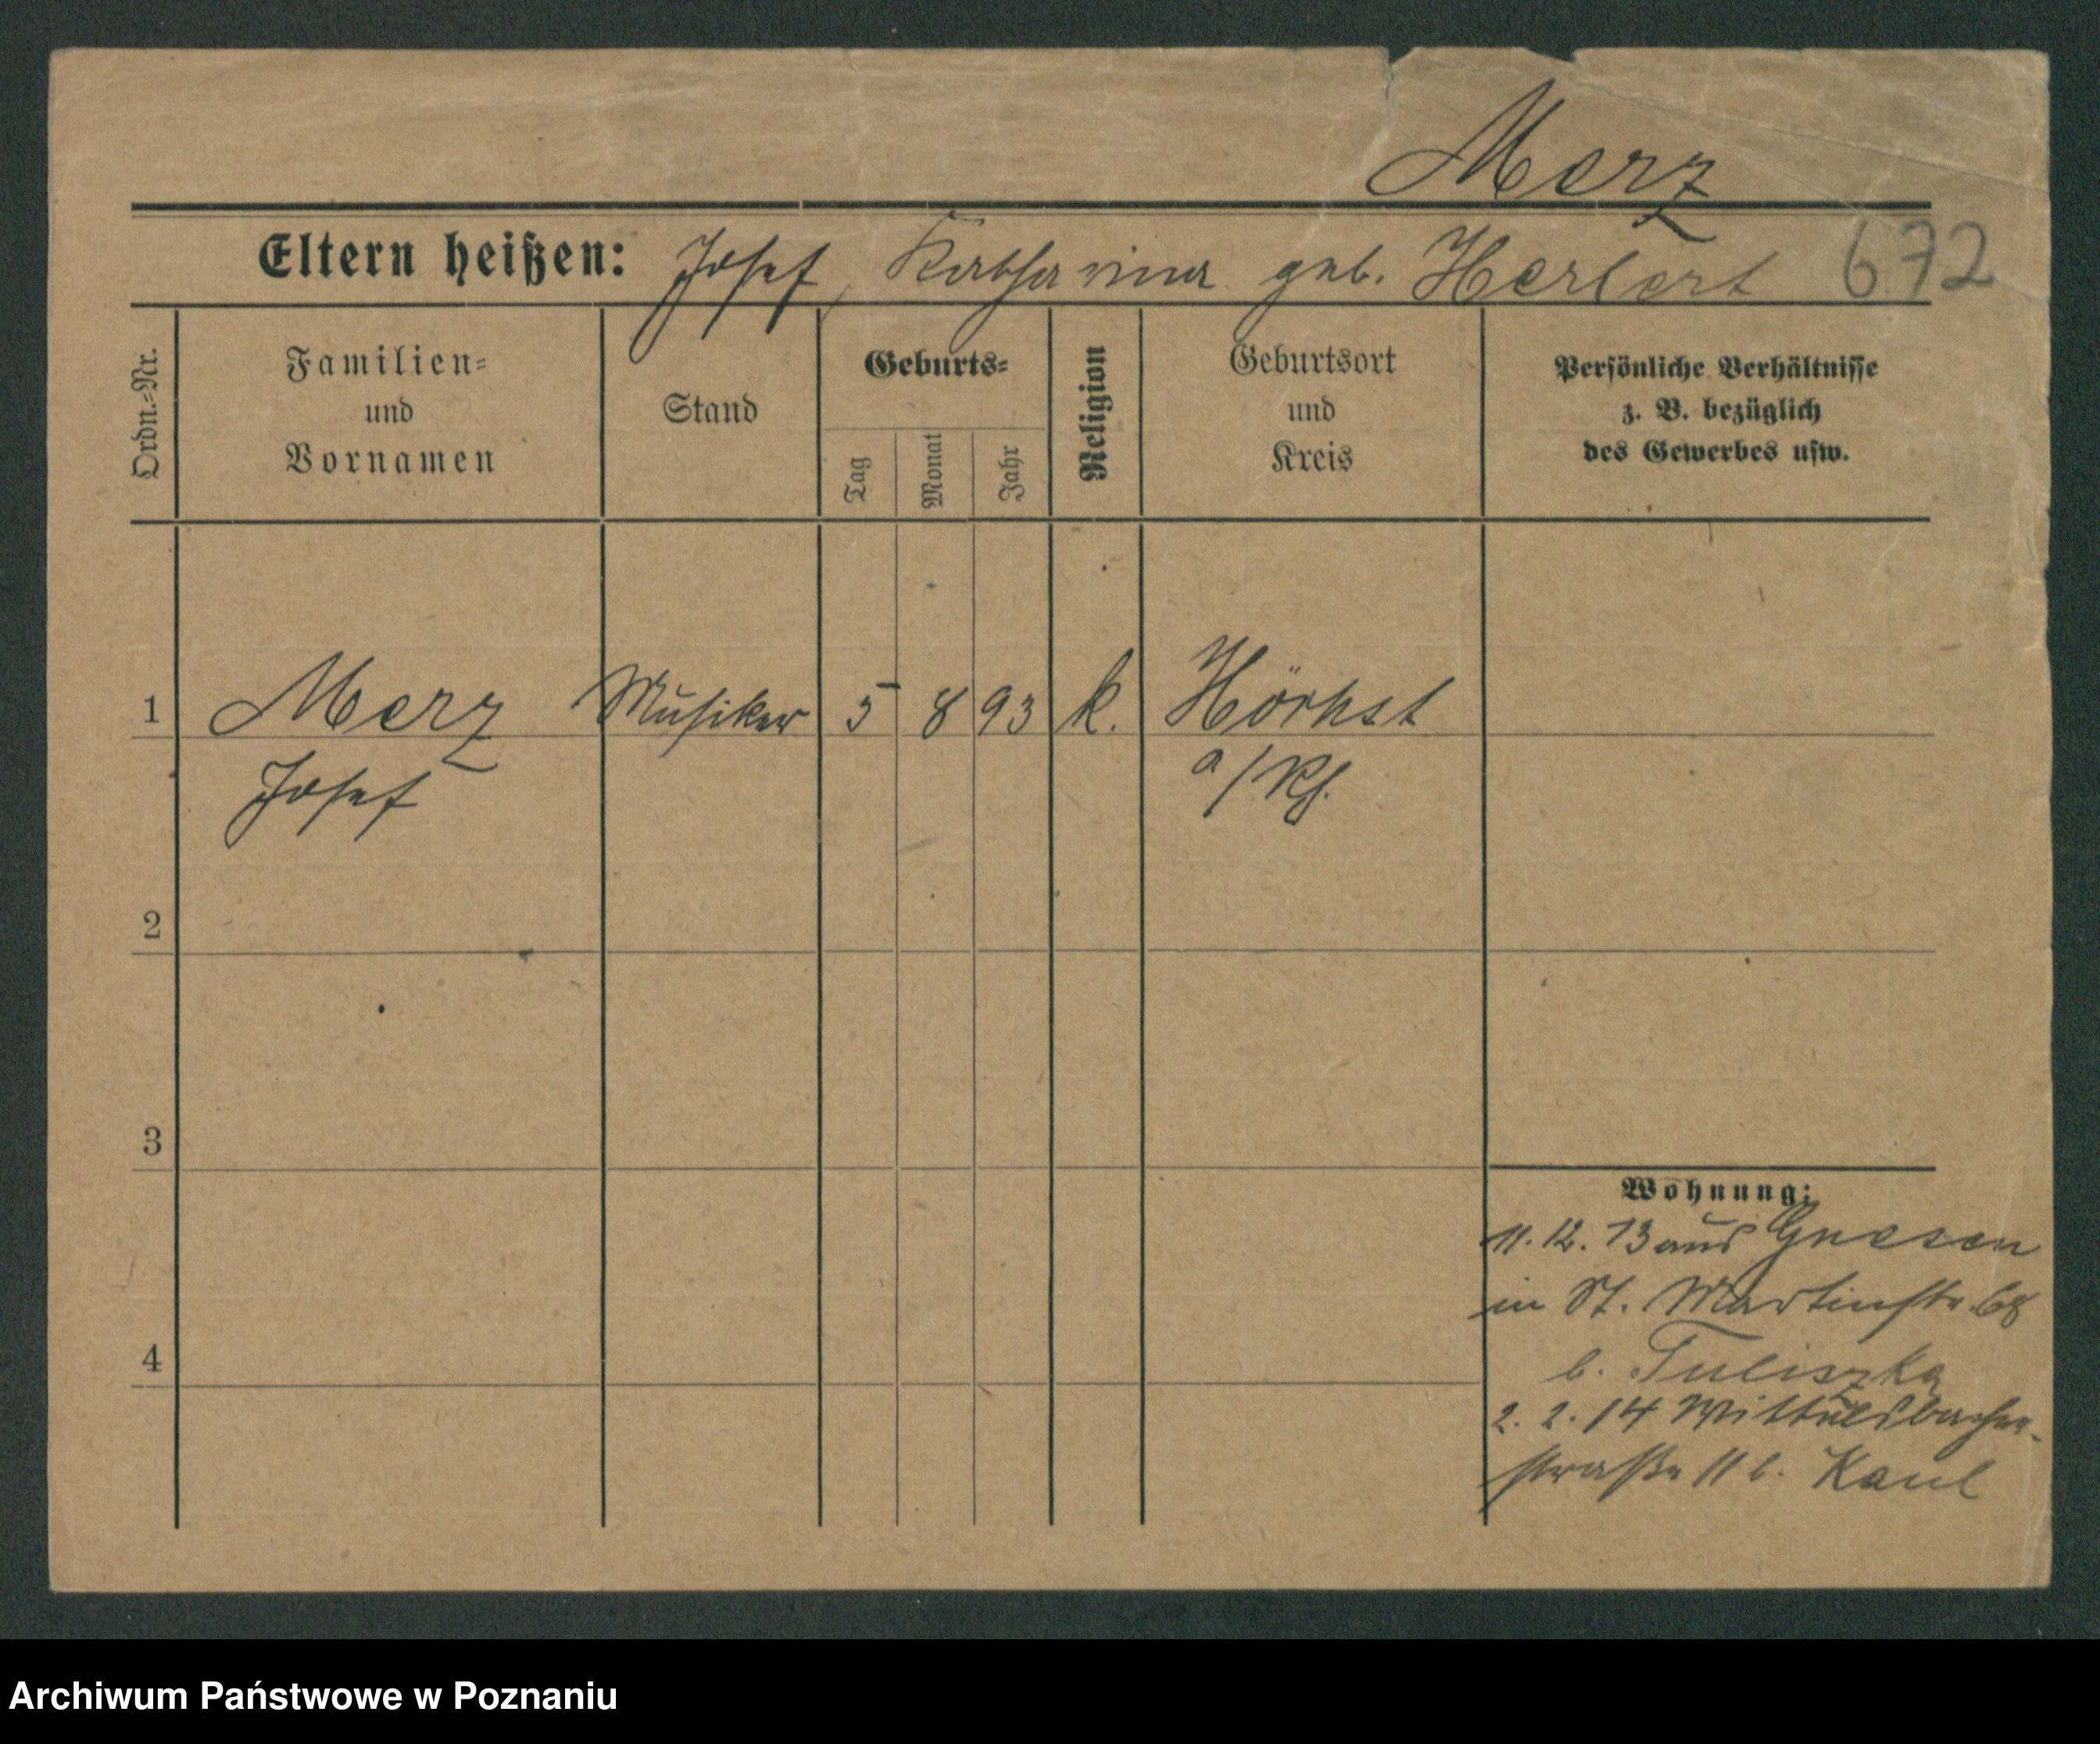 Merz
Eltern heißen: Josef, Katharina geb. Herbert 672
Ordn.-Nr.
Familien-
und
Vornamen
Stand
Geburts-
Tag
Monat
Jahr
Religion
Geburtsort
und
Kreis
Persönliche Verhältnisse
z. B. bezüglich
des Gewerbes usw.
1 Merz Musiker 5 8 93 k. Hörhst
Josef a/Rh.
2
3
4
Wohnung:
11. 12. 13 aus Gnesen
in St. Martinstr. 68
b. Tuliszka
2. 2. 14 Wittelsbacher-
straße 11 b. Kaul
Archiwum Państwowe w Poznaniu